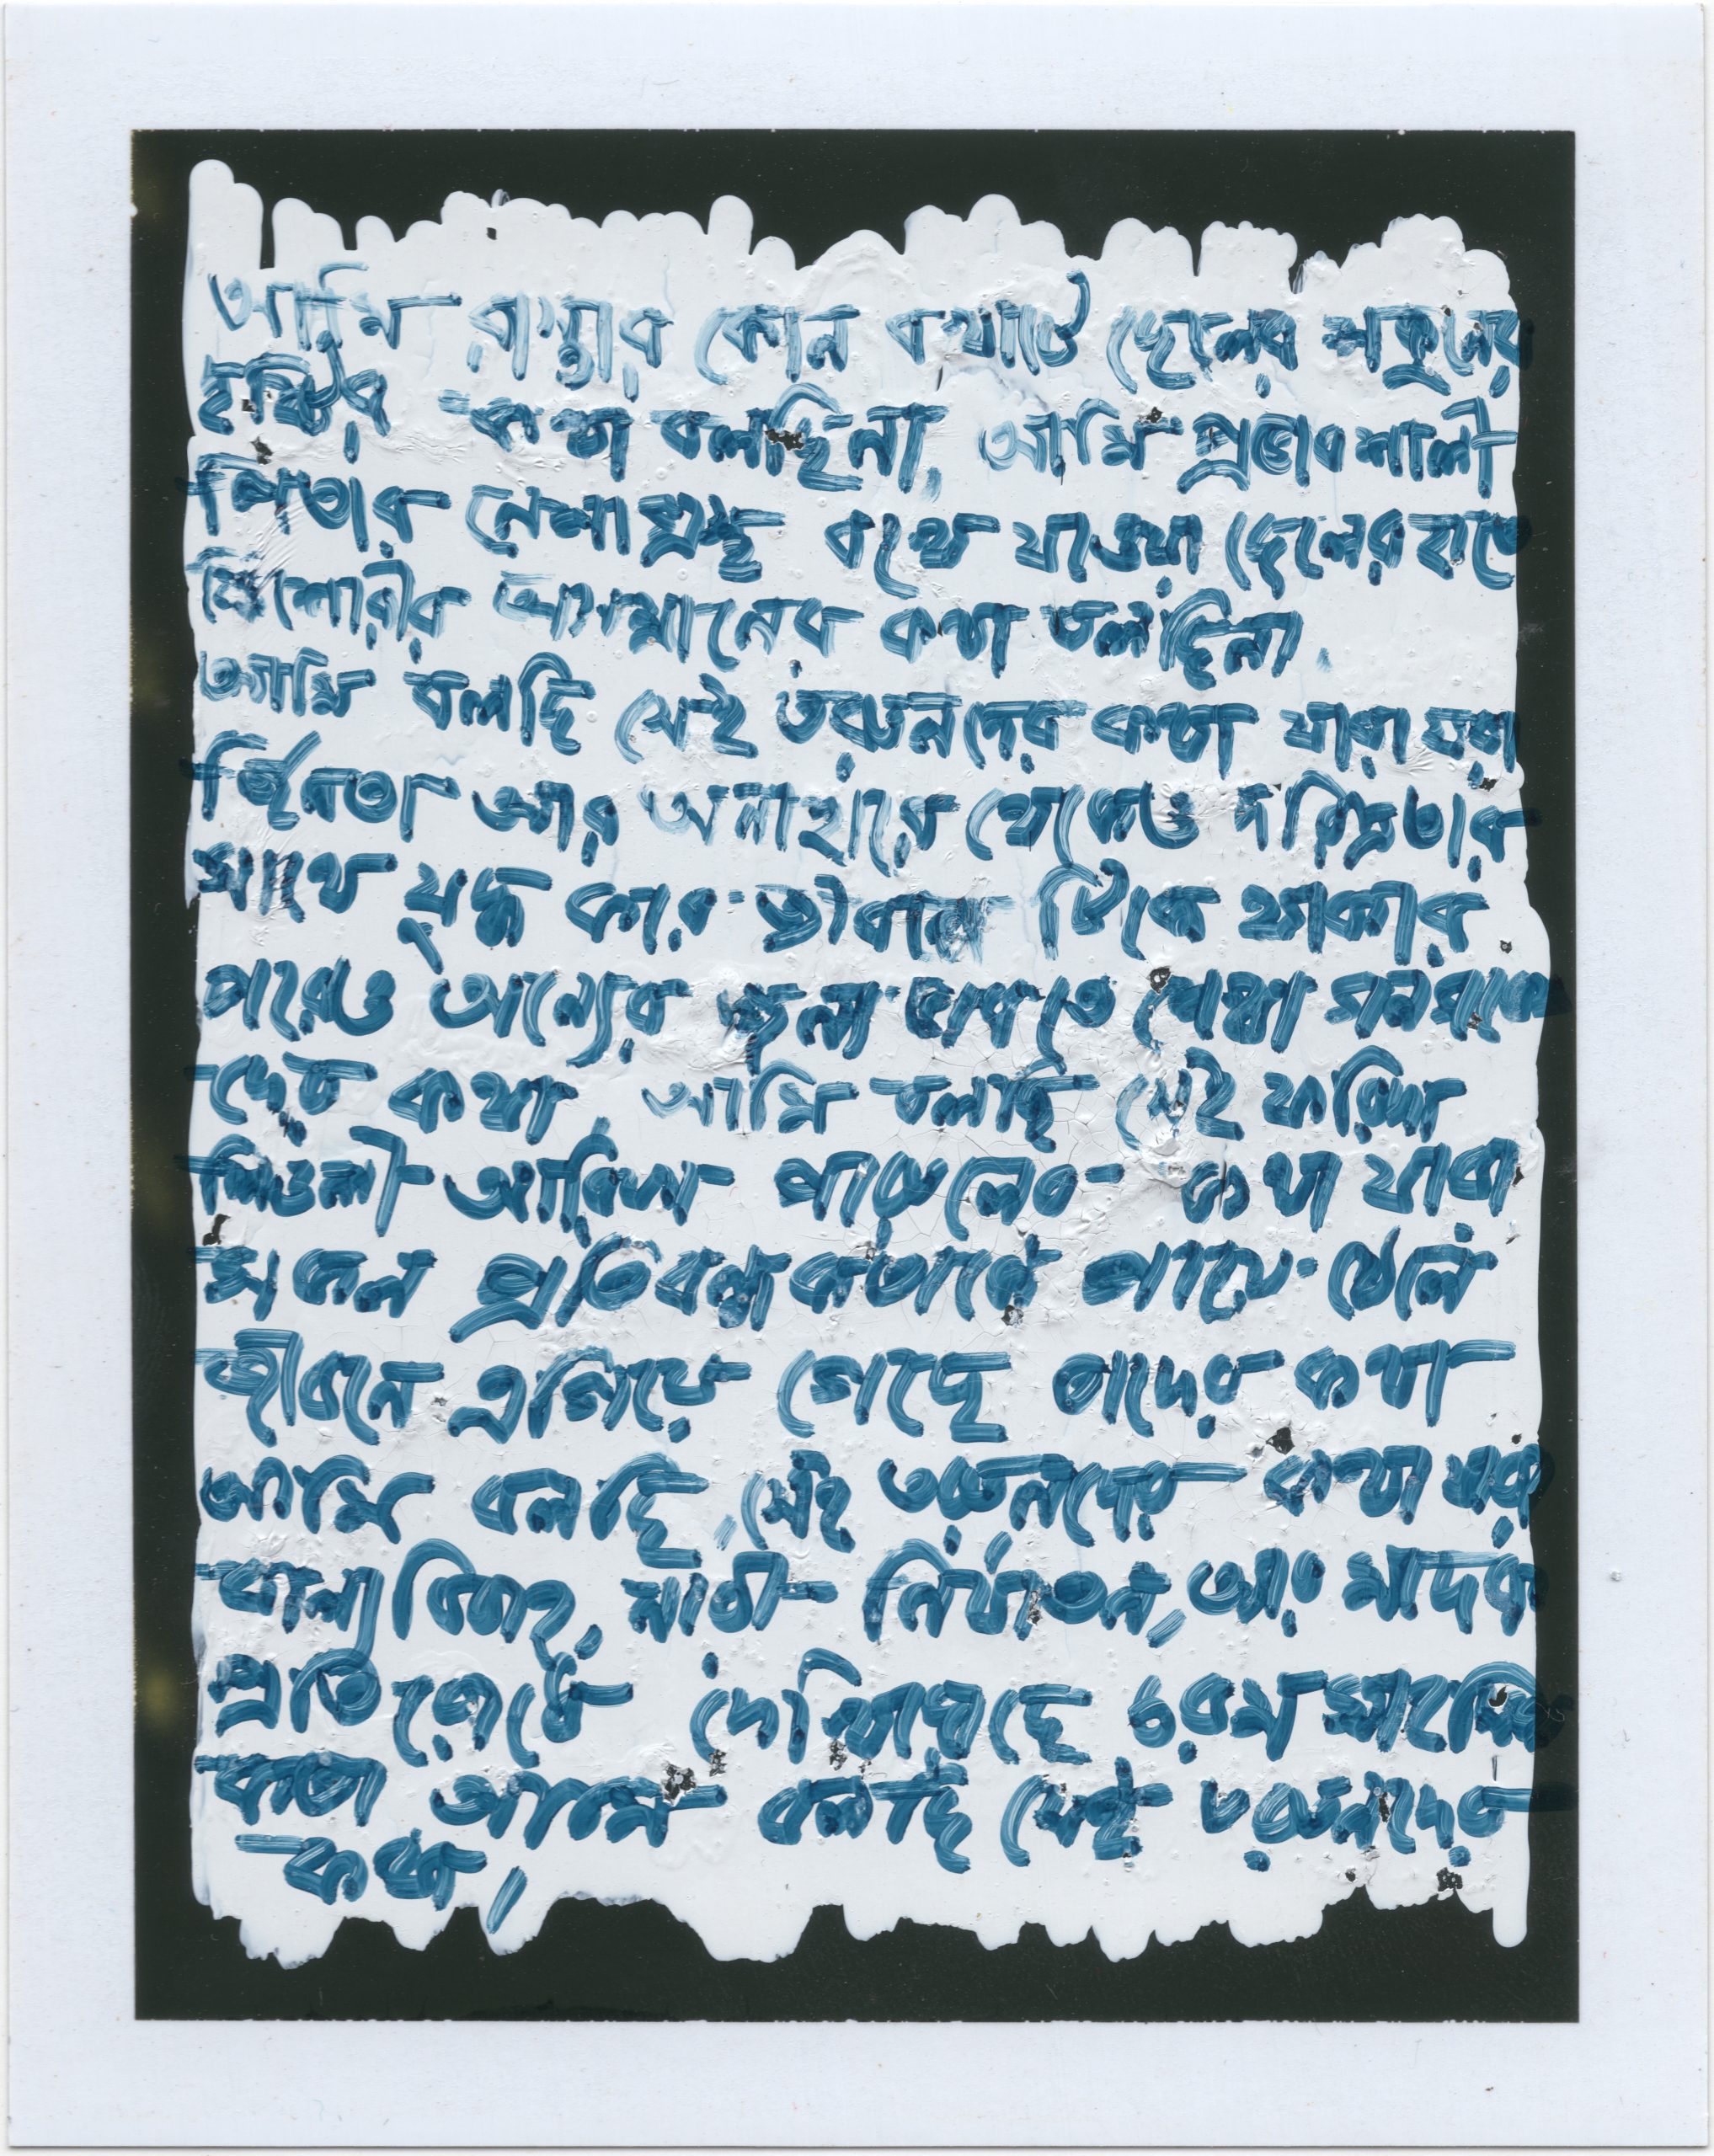 আমি রাস্তার কোন বখাটে ছেলের শকুনের
দৃষ্টির কথা বলছিনা, আমি প্রভাবশালী
পিতার নেশাগ্রস্থ বখে যাওয়া ছেলের হাতে
কিশোরীর অপমানের কথা বলছিনা
আমি বলছি সেই তরুনদের কথা যারা
আর অনাহারে থেকেও দরিদ্রতার
সাথে যুদ্ধ করে জীবনে টিকে থাকার
পরেও অন্যের জন্য ভাবতে শেখা
দের কথা, আমি বলছি সেই ফরিদা
শিউলী আরিফা পারুলের কথা যারা
সকল প্রতিবন্ধকতাকে পায়ে ঠেলে
জীবনে এগিয়ে গেছে তাদের কথা
আমি বলছি, সেই তরুনদের কথা
বাল্যবিবাহ, নারী নির্যাতন, আর মাদক
প্রতিরোধে চরম
আমি বলছি সেই তরুনদের
কথা,